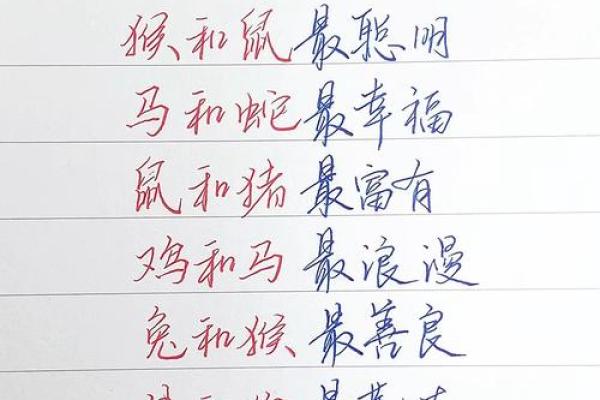 猴和鼠最聪明
马和蛇最幸福
鼠和猪最富有
鸡和马最浪漫
兔和猴最善良